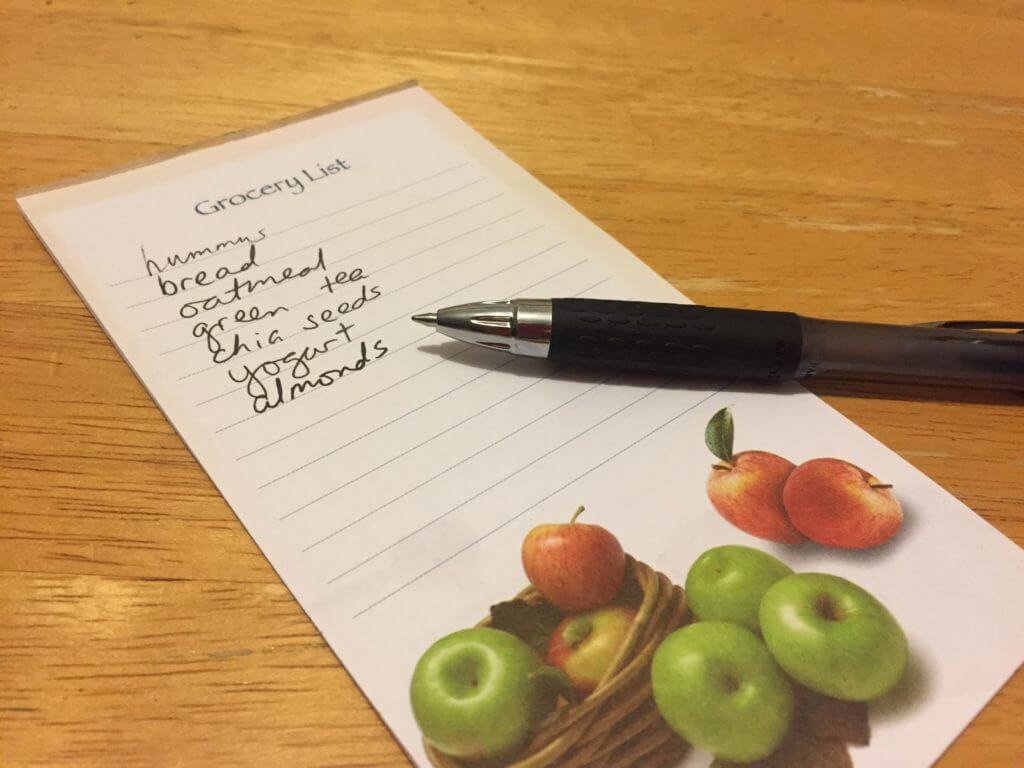 Grocery List
hummus
bread
oatmeal
green tea
chia seeds
yogurt
almonds